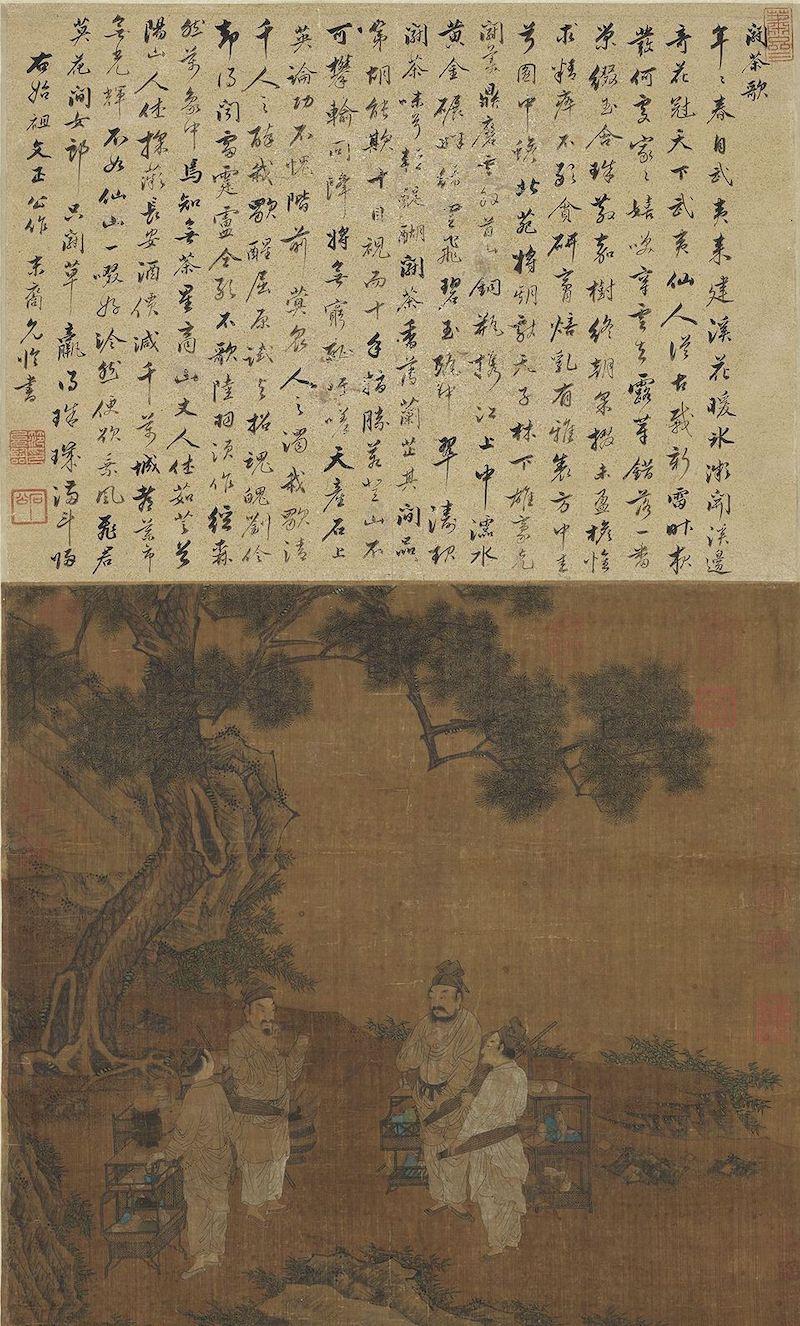 鬬茶歌
年〻春自武夷來建溪花暖冰漸開溪邊
奇花冠天下武夷仙人從古栽新雷昨夜
發何處家〻嬉笑穿雲去露芽錯落一番
榮綴玉含珠散嘉樹終朝采掇未盈襜惟
求精粹不敢貪研膏焙乳有雅製方中圭
兮圓中蟾北苑將期獻天子林下雄豪先
鬬美鼎磨雲外首山銅瓶攜江上中濡水
黃金碾畔綠塵飛碧玉甌中翠濤起
鬬茶味兮輕醍醐鬬茶香薄蘭芷其間品
第胡能欺十目視而十手指勝若登山不
可攀輸同降將無窮恥吁嗟天產石上
英論功不愧階前蓂衆人之濁我歌清
千人之醉我歌醒屈原試與招魂魄劉伶
却得聞雷霆盧仝敢不歌陸羽須作經森
然萬象中焉知無茶星商山丈人休茹芝首
陽山人休採薇長安酒價減千萬城都藥市
無光輝不如仙山一啜好泠然便欲乘風飛君
莫花間女郎只鬬草贏得珠璣滿斗歸
右始祖文正公作末裔允臨書